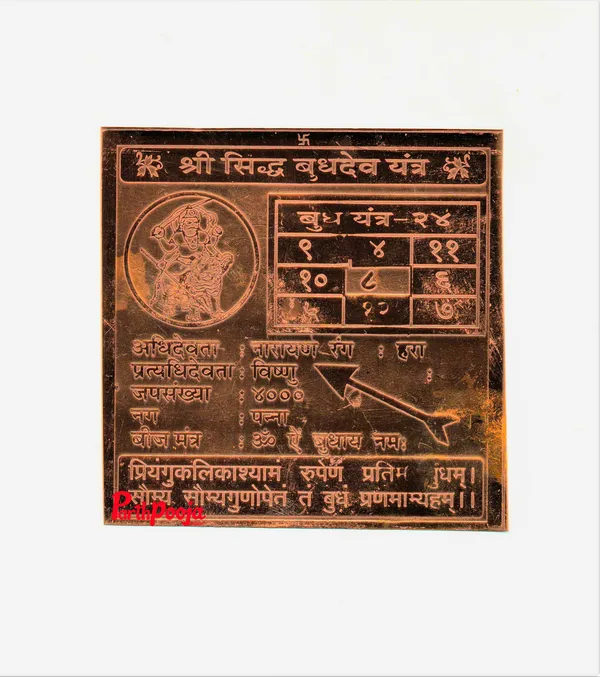 श्री सिद्ध बुधदेव यंत्र
बुध यंत्र-२४
९ ४ ११
१० ८ ६
१२ ७
अधिदेवता : नारायण रंग : हरा
प्रत्यधिदेवता : विष्णु :
जपसंख्या : ४०००
नग : पन्ना
बीज मंत्र : ॐ ऐं बुधाय नमः
प्रियंगुकलिकाश्यामं रुपेणं प्रतिम धम्।
सौम्य सौम्यगुणोपेतं तं बुधं प्रणमाम्यहम्।।
ParthPooja